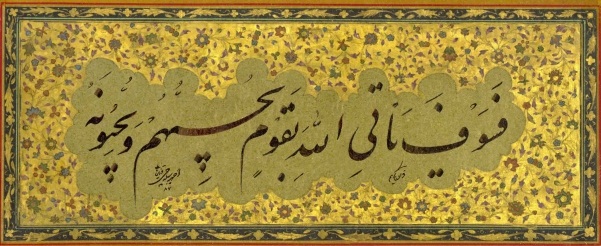 فَسَوفَ يَاتِي اللهُ بِقَومٍ يُحِبُّهُم وَيُحِبُّونَهُ